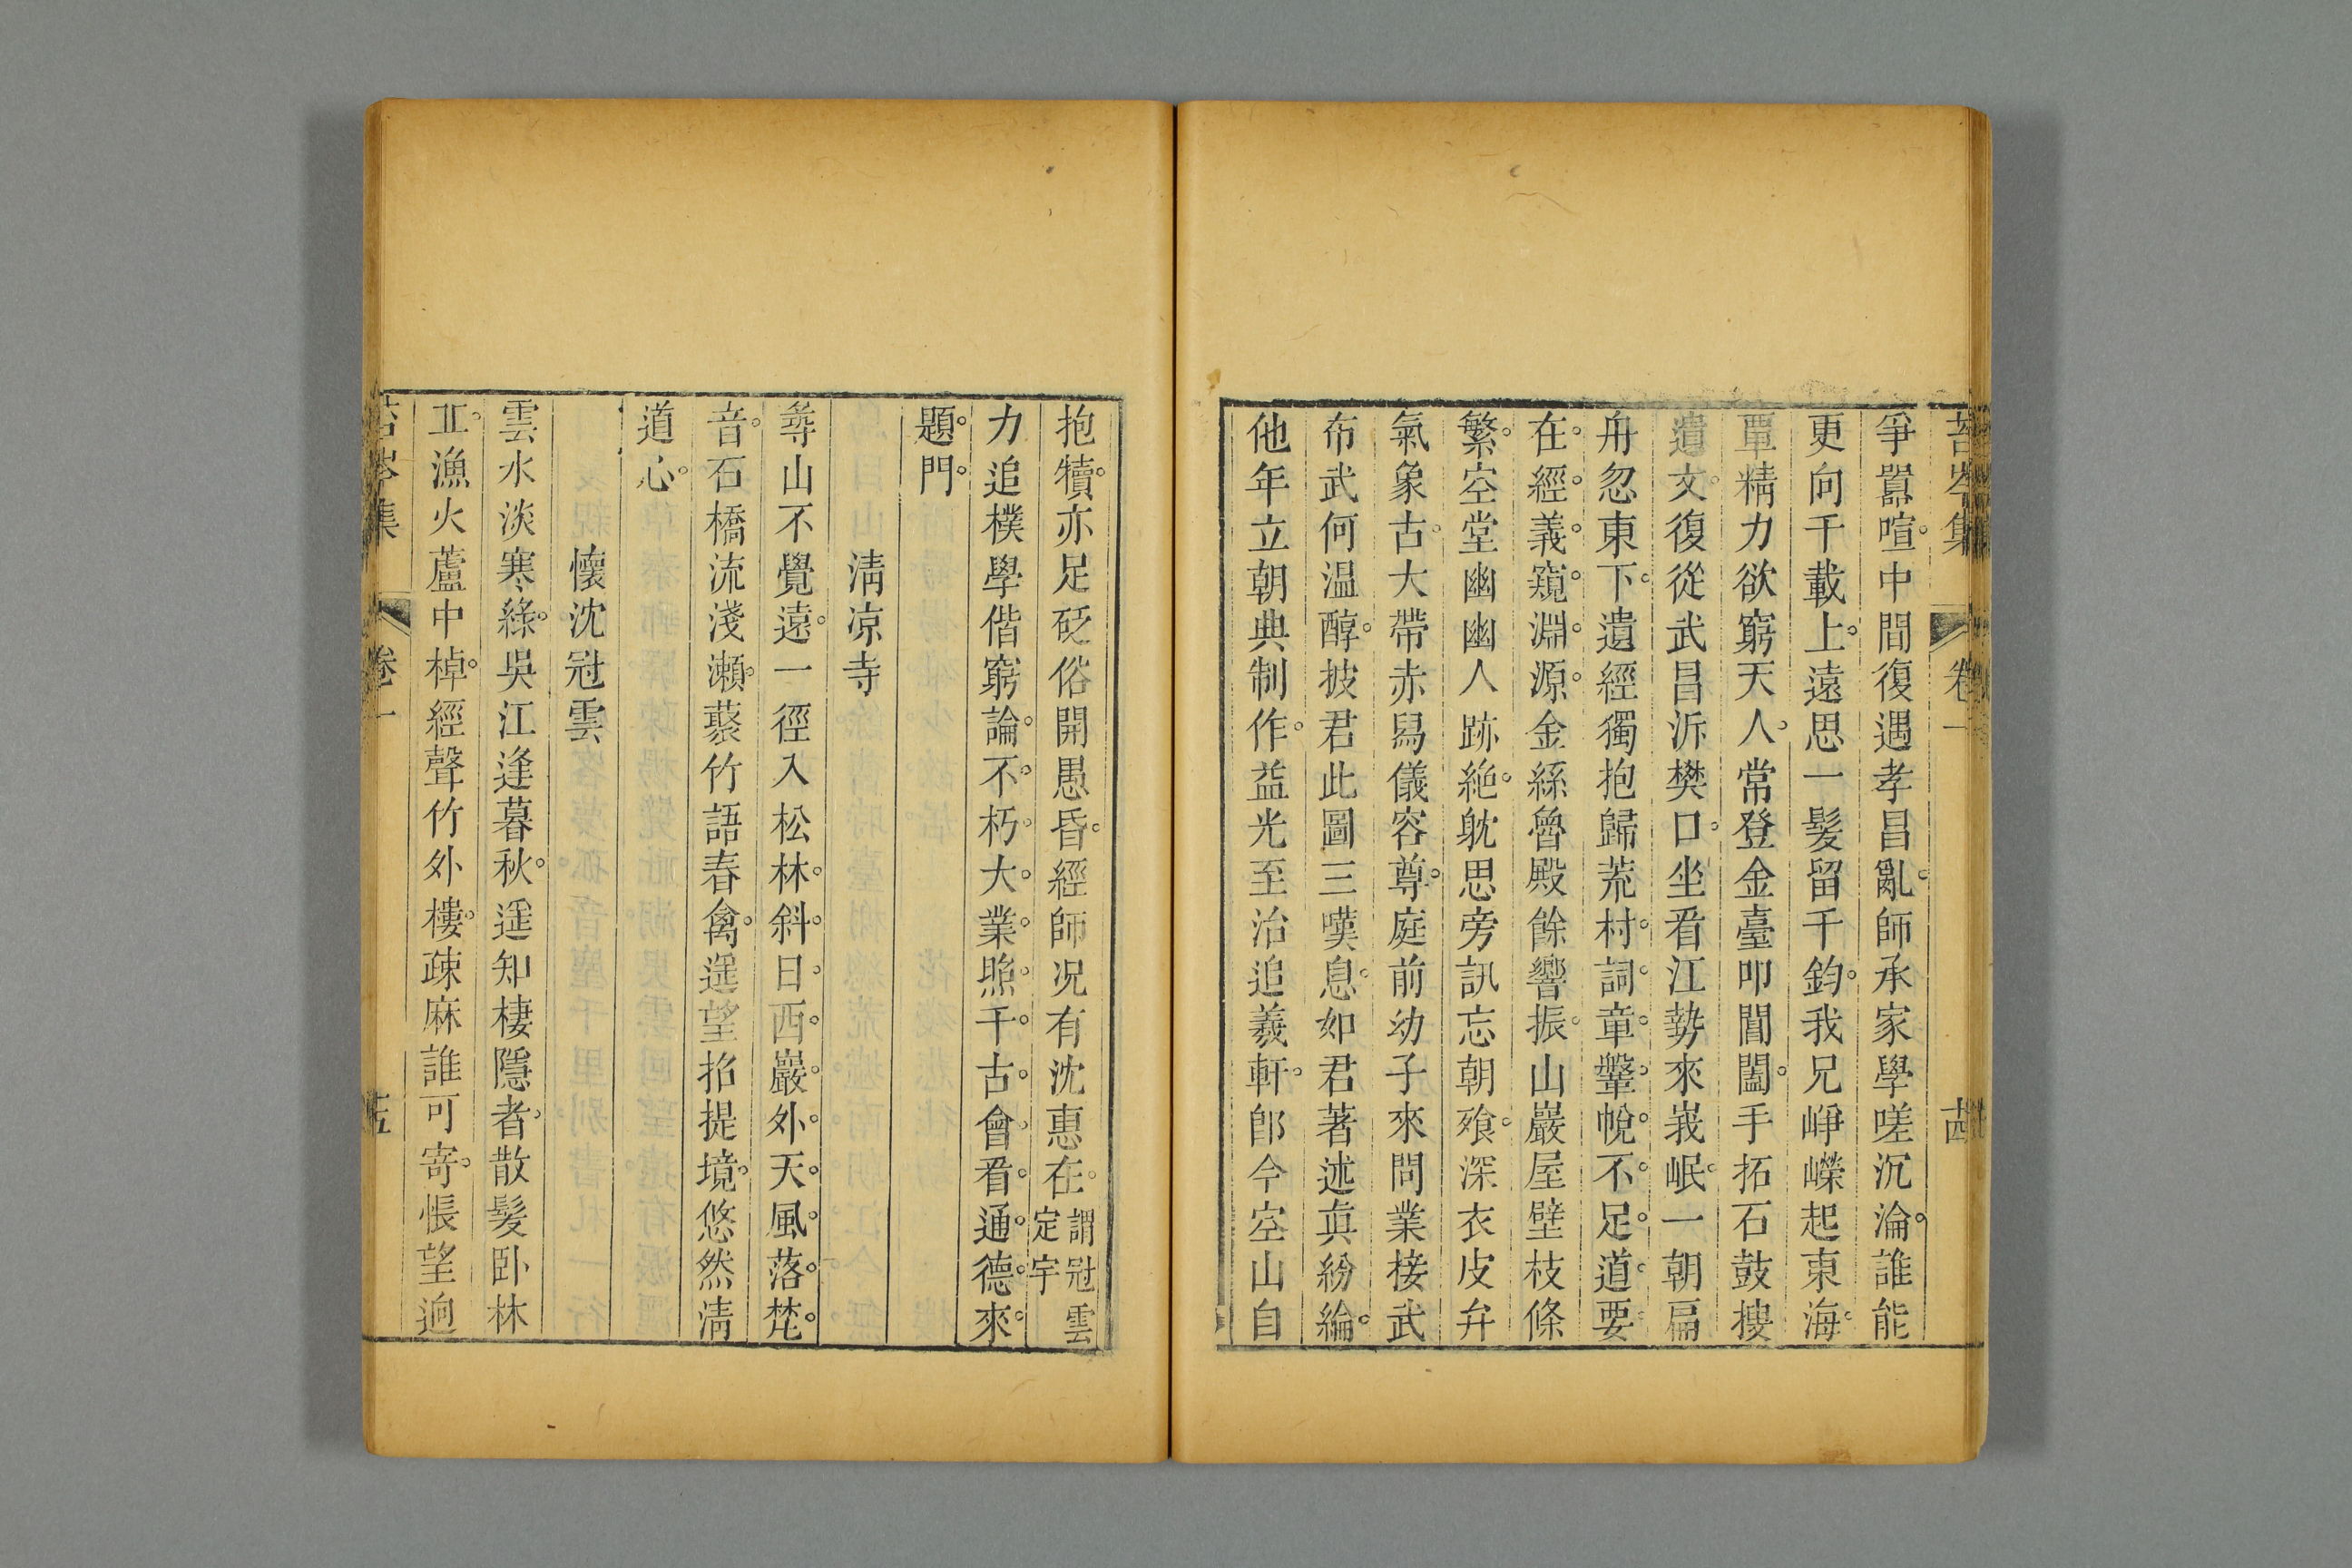 苔岑集 卷一 十四
爭囂喧中間復遇孝昌亂師承家學嗟沉淪誰能
更向千載上遠思一髮留千鈞我兄崢嶸起東海
覃精力欲窮天人常登金臺叩閶闔手拓石鼓搜
遺文復從武昌泝樊口坐看江勢來峩岷一朝扁
舟忽東下遺經獨抱歸荒村詞章鞶帨不足道要
在經義窺淵源金絲魯殿餘響振山巖屋壁枝條
繁空堂幽幽人跡絶躭思旁訊忘朝飱深衣皮弁
氣象古大帶赤舄儀容尊庭前幼子來問業接武
布武何温醇披君此圖三嘆息如君著述眞紛綸
他年立朝典制作益光至治追羲軒卽今空山自
抱犢亦足砭俗開愚昏經師况有沈惠在謂冠雲定宇
力追樸學偕窮論不朽大業照千古會看通德來
題門
淸凉寺
尋山不覺遠一徑入松林斜日西巖外天風落梵
音石橋流淺瀨藂竹語春禽遥望招提境悠然淸
道心
懷沈冠雲
雲水淡寒綠吳江逢暮秋遥知棲隱者散髮卧林
丘漁火蘆中棹經聲竹外樓疎麻誰可寄悵望逈
苔岑集 卷一 十五